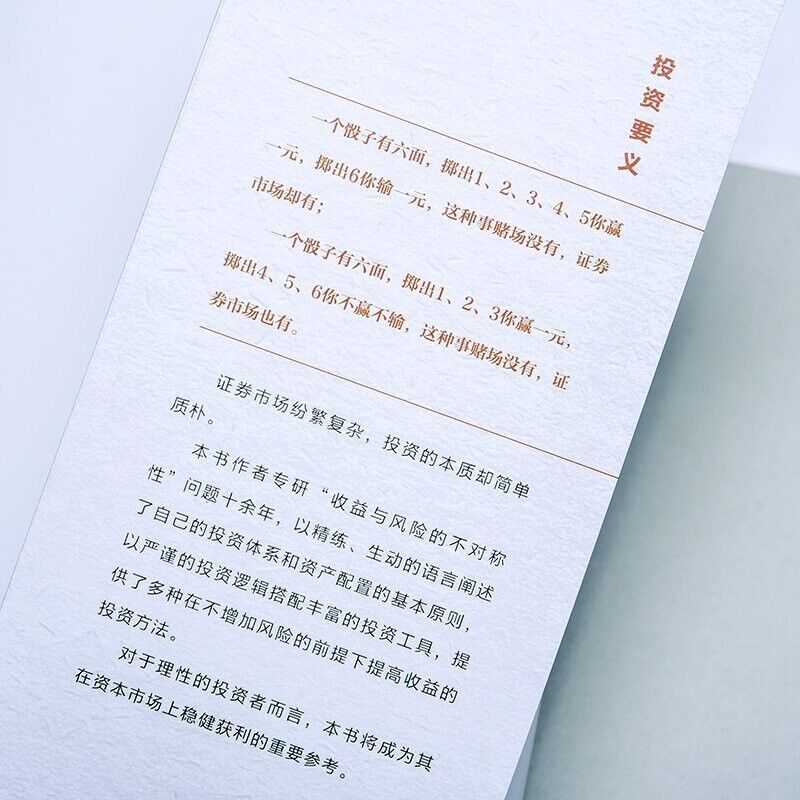 投资要义
一个骰子有六面，掷出1、2、3、4、5你赢
一元，掷出6你输一元，这种事赌场没有，证券
市场却有；
一个骰子有六面，掷出1、2、3你赢一元，
掷出4、5、6你不赢不输，这种事赌场没有，证
券市场也有。
证券市场纷繁复杂，投资的本质却简单
质朴。
本书作者专研“收益与风险的不对称
性”问题十余年，以精练、生动的语言阐述
了自己的投资体系和资产配置的基本原则，
以严谨的投资逻辑搭配丰富的投资工具，提
供了多种在不增加风险的前提下提高收益的
投资方法。
对于理性的投资者而言，本书将成为其
在资本市场上稳健获利的重要参考。